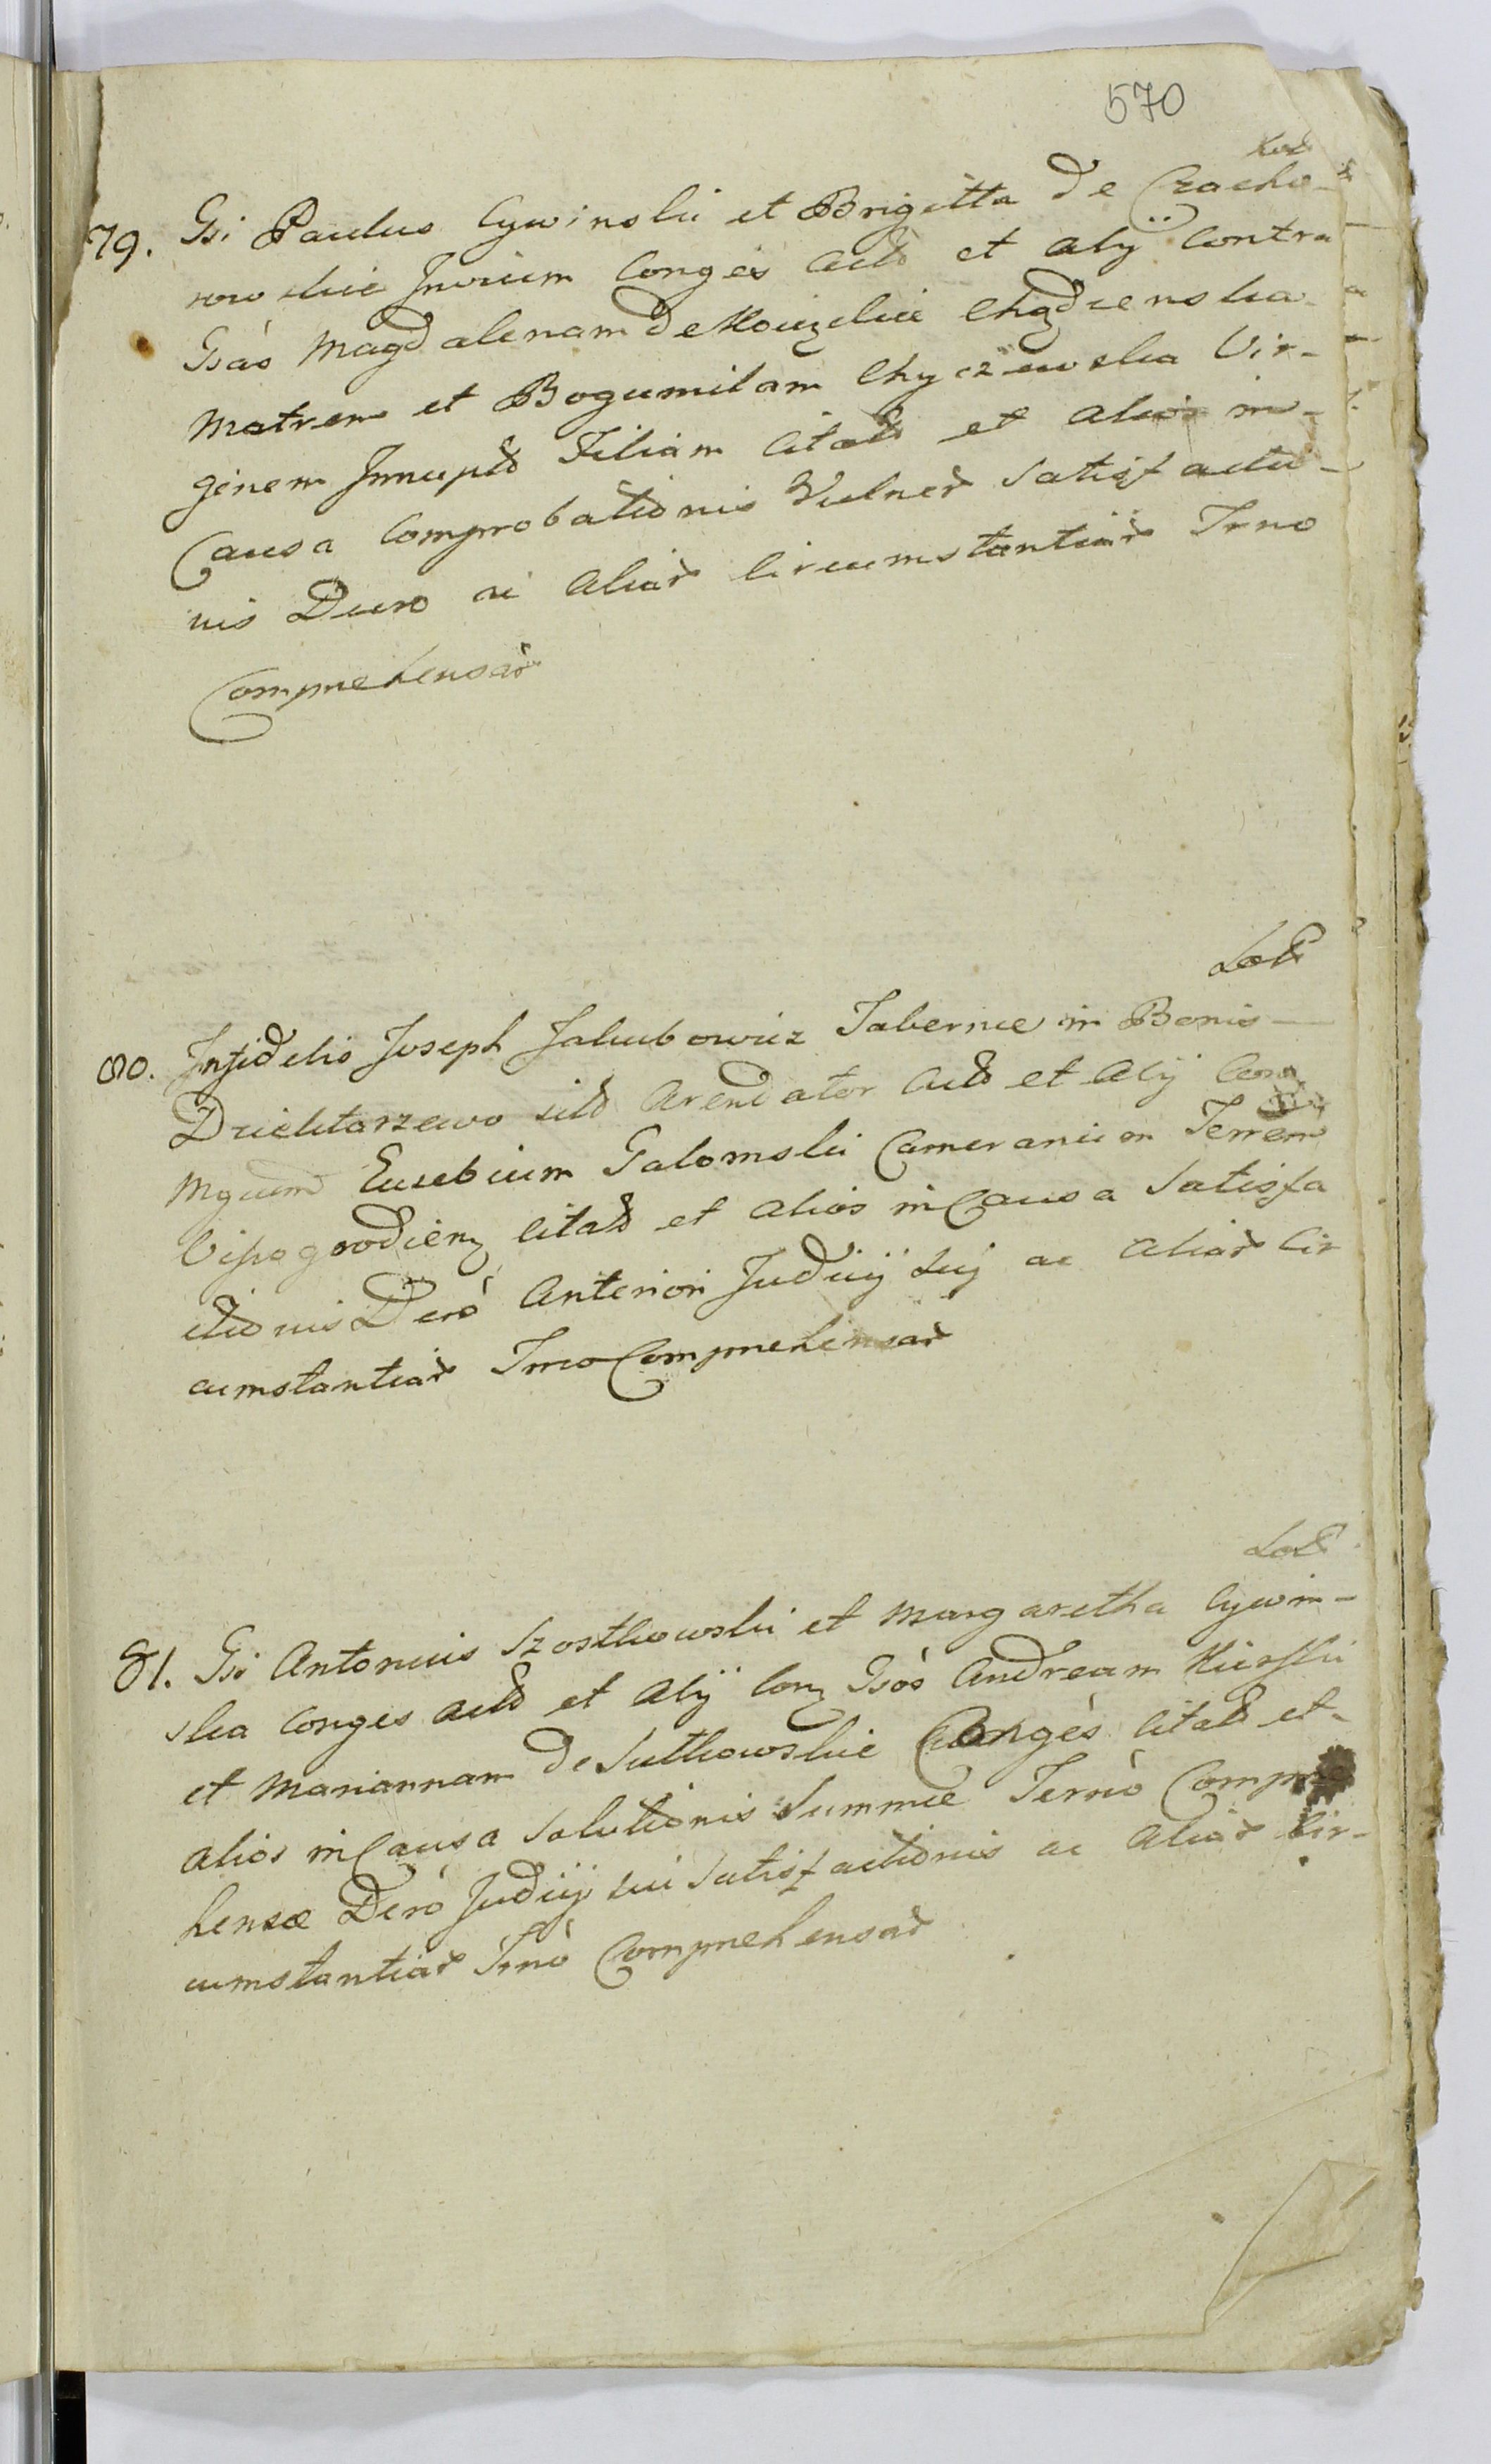 570
79. Gsi Paulus Cywinski et Brigitta de Czacho-
rowskie Invicem Conges Actd et Alij Contra
Gsas Magdalenam de Chądzenska
Matrem et Bogumilam Chyczewska Vir-
ginem Innuptd Filiam Citatd et Alios in
Causa Comprobationis Vulner Satisfactio-
nis Decro ac Aliar Circumstantiar Trno
Comprehensar
Lodt
80. Infidelis Joseph Jakubowicz Tabernae in Bonis
Dziektarzewo sitd Arendator Actd et Alij Con
Mgcum Eusebium Galomski Camerarium Terrem
Vissogrodien Citatd et Alios in Causa Satisfa
ctionis Decrò Anteriori Judicij Sui ac Aliar Cir
cumstantiar Trno Comprehensar
Lodt
81. Gsi Antonius Szostkowski et Margaretha Cywin-
ska Conges Actd et Alij Con Gsos Andream
et Mariannam de Sutkowskie Conges Citatd et
alios in Causa Solutionis Summae Termò Compre
hensae Decrò Judicij sui Satisfactionis ac Aliar Cir-
cumstantiar Trnò Comprehensar